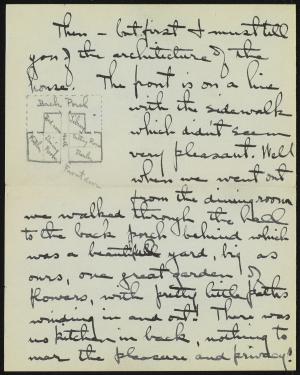 Then - but first I must tell
you of the architecture of the
house. The front is on a line
with the sidewalk
which didn't seem
very pleasant. Well
when we went out
from the dining room
we walked through the hall
to the back porch behind which
was a beautiful yard, big as
ours, one great garden of
flowers, with pretty little paths
winding in and out! There was
no kitchen in back, nothing to
mar the pleasure and privacy!
Back Porch
Hall
Front door